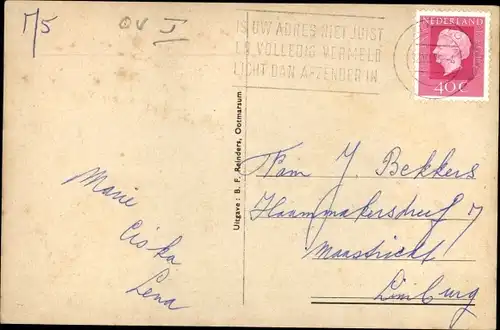 175
OV I
IS UW ADRES NIET JUIST
OF VOLLEDIG VERMELD
LICHT DAN AFZENDER IN
NEDERLAND
40 c
Uitgave: B. F. Reinders, Ootmarsum
Fam J. Bekkers
Haammakersdreef 7
Maastricht
Limburg
Marie
Ciska
Lena